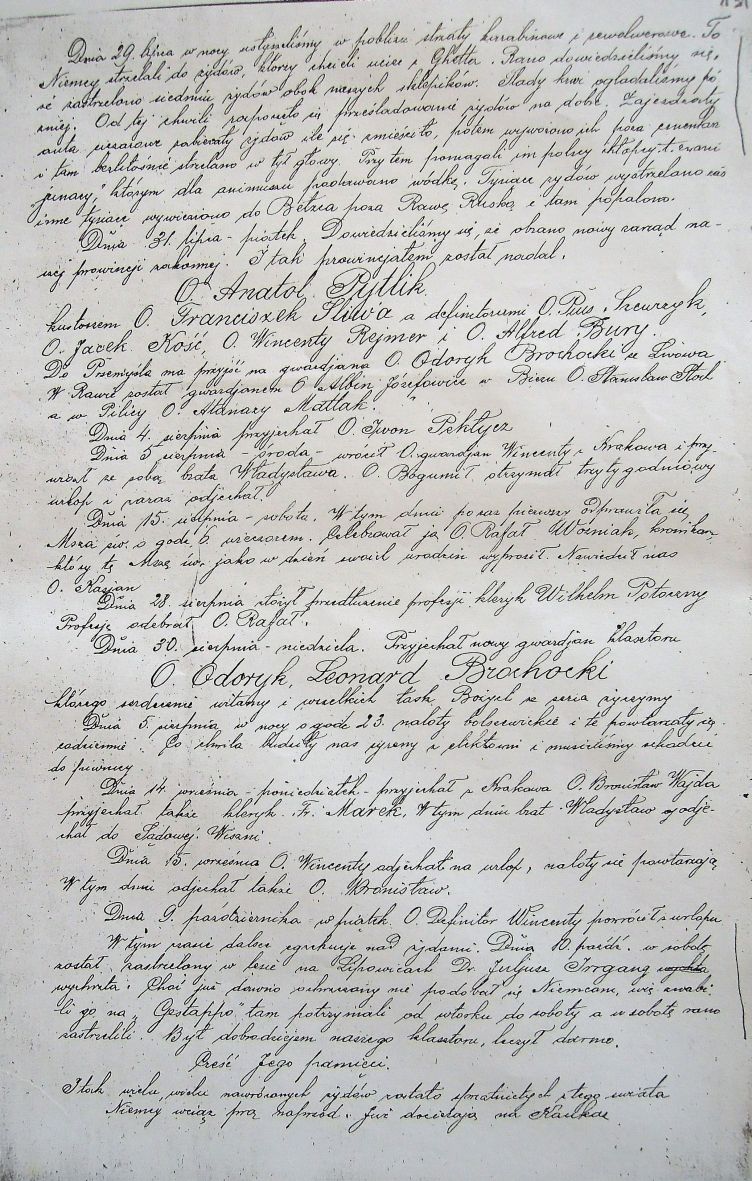 Dnia 29 lipca w nocy usłyszeliśmy w pobliżu strzały karabinowe i rewolwerowe. To
Niemcy strzelali do żydów, którzy chcieli uciec z Ghetta. Rano dowiedzieliśmy się,
że zastrzelono siedmiu żydów obok naszych sklepików. Ślady krwi oglądaliśmy pó
źniej. Od tej chwili rozpoczęło się prześladowanie żydów na dobre. Zajeżdżały
auta ciężarowe zabierały żydów ile się zmieściło, potem wywożono ich poza cmentarz
i tam bezlitośnie strzelano w tył głowy. Przytem pomagali im polscy chłopcy t. zwani
"junacy," którym dla animuszu podawano wódkę. Tysiące żydów wystrzelano zaś
inne tysiące wywieziono do Bełżca poza Rawę Ruską i tam popalono.
Dnia 31 lipca - piątek. Dowiedzieliśmy się, że obrano nowy zarząd na-
szej prowincji zakonnej. I tak prowincjałem został nadal.
O. Anatol Pytlik
kustoszem O. Franciszek Śliwa a definitorami O. Pius Szczurzyk,
O. Jacek Kość, O. Wincenty Rejmer i O. Alfred Bury.
Do Przemyśla ma przyjść na gwardjana O. Odoryk Brochocki ze Lwowa
W Rawie został gwardjanem O. Albin Józefowicz w Bieczu O. Stanisław Stoch
a w Pilicy O. Atanazy Matlak.
Dnia 4. sierpnia przyjechał O. Iwon
Dnia 5 sierpnia - środa - wrócił O. gwardjan Wincenty z Krakowa i przy
wiózł ze sobą brata Władysława. O. Bogumił otrzymał trzytygodniowy
urlop i zaraz odjechał.
Dnia 15. sierpnia - sobota. W tym dniu po raz pierwszy odprawiła się
Msza św. o godz. 6. wieczorem. Celebrował ją O. Rafał Woźniak, kronikarz,
który tę Mszę św. jako w dzień swoich urodzin wyprosił. Nawiedził nas
O. Kasjan
Dnia 28. sierpnia złożył przedłużenie profesji kleryk Wilhelm Potoczny
Profesję odebrał O. Rafał.
Dnia 30. sierpnia - niedziela. Przyjechał nowy gwardjan klasztoru
O. Odoryk, Leonard Brochocki
którego serdecznie witamy i wszelkich łask Bożych ze serca życzymy
Dnia 5. sierpnia w nocy o godz 23. naloty bolszewickie i te powtarzały się
codziennie. Co chwila budziły nas syreny z elektrowni i musieliśmy schodzić
do piwnicy
Dnia 14. września - poniedziałek - przyjechał z Krakowa O. Bronisław Wajda
przyjechał także kleryk Fr. Marek. W tym dniu brat Władysław odje-
chał do Sądowej Wiszni.
Dnia 15. września O. Wincenty odjechał na urlop, naloty się powtarzają
W tym dniu odjechał także O. Bronisław.
Dnia 9. października - w piątek. O. Definitor Wincenty powrócił z urlopu
W tym czasie dalsze egzekucje nad żydami. Dnia 10. paźdź. w sobotę
został zastrzelony w lesie na Lipowicach Dr. Juljusz Irrgang
wychrzta. Choć już dawno ochrzczony nie podobał się Niemcom, więc zwabi-
li go na "Gestappo," tam potrzymali od wtorku do soboty a w sobotę rano
zastrzelili. Był dobrodziejem naszego klasztoru, leczył darmo.
Cześć Jego pamięci.
I tak wielu, wielu nawróconych żydów zostało sprzątniętych z tego świata
Niemcy wciąż prą naprzód. Już docierają na Kaukaz